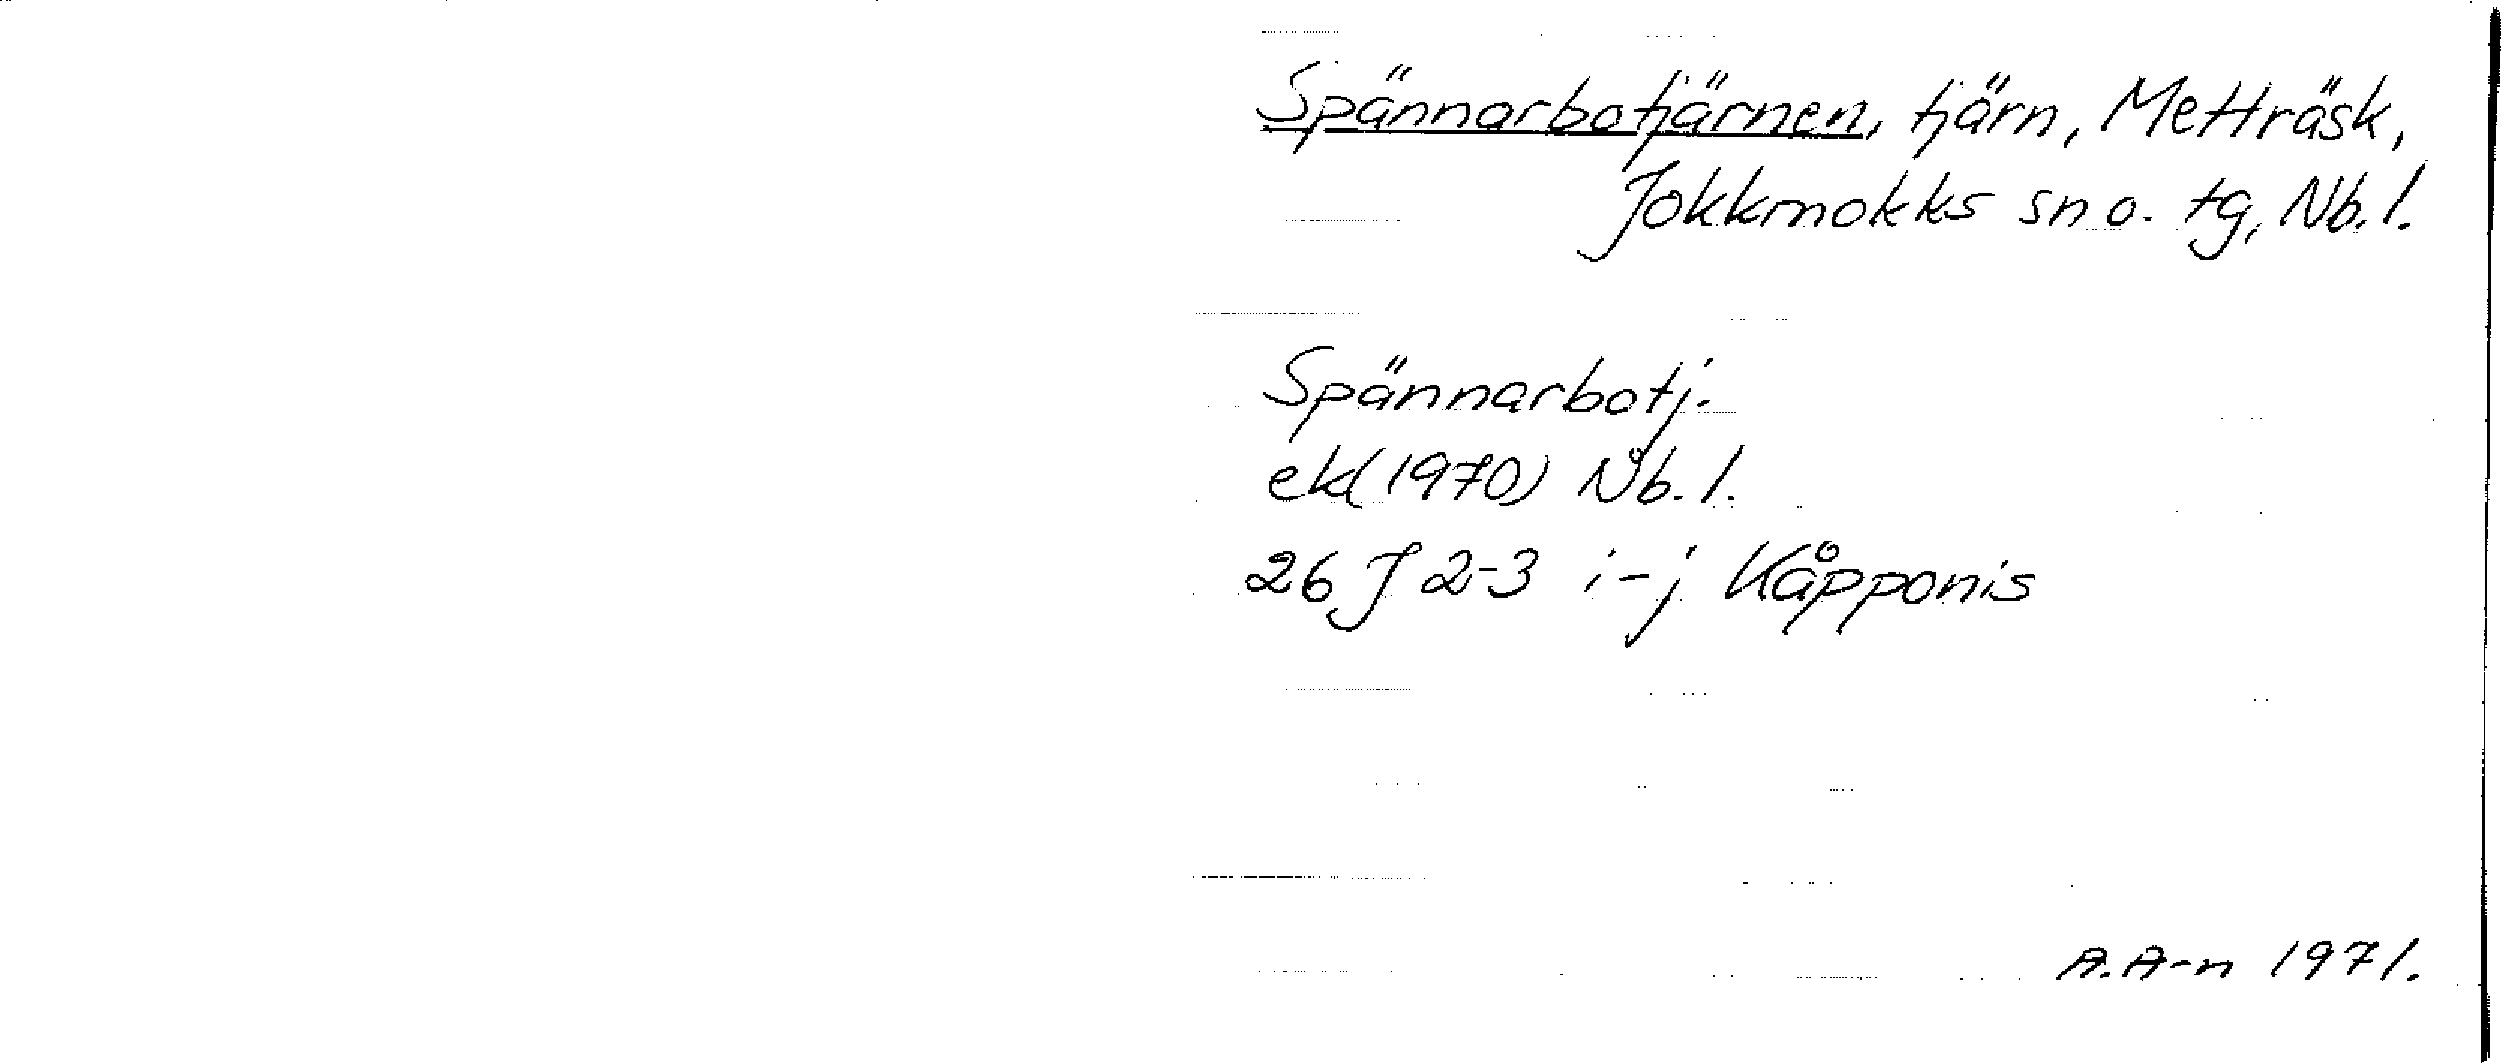 Spännarbotjärnen, tjärn, Metträsk,
Jokkmokks sn o. tg, Nb. l.
Spännarbotj.
ek(1970) Nb. l.
26 J 2-3 i-j Kåpponis
A. A-n 1971.